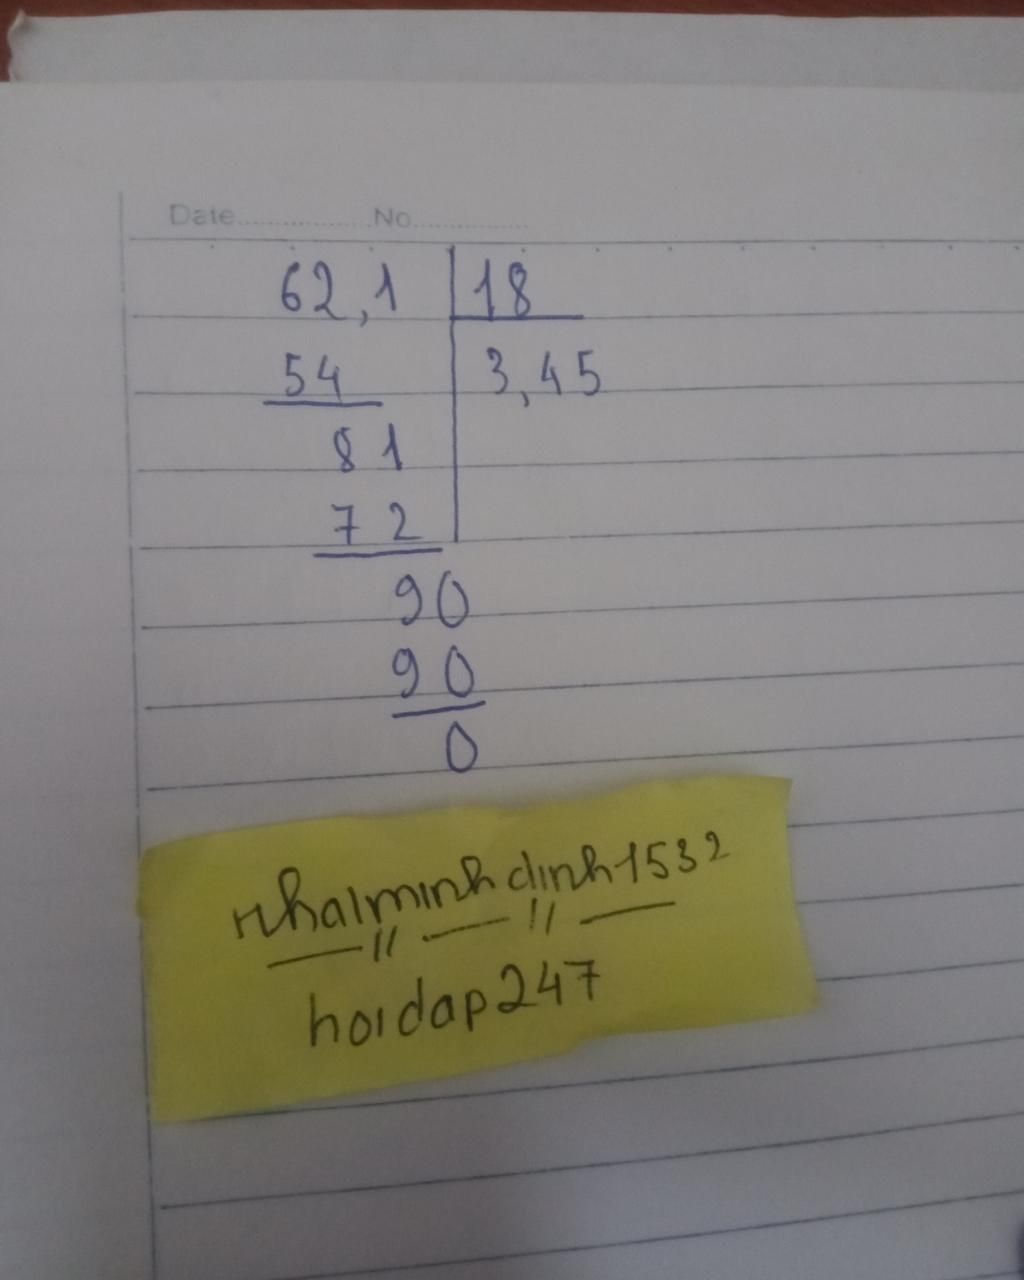 Date.................No.................
62,1 18
54 3,45
81
72
90
90
0
nhalminhdinh1532
hoidap247